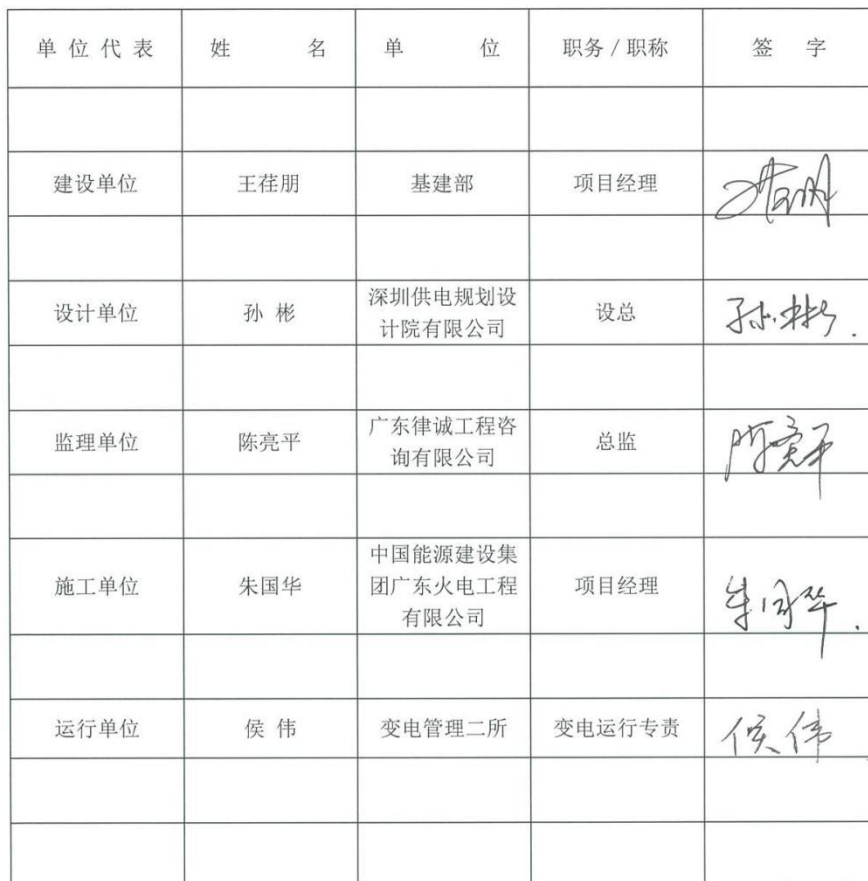 单位代表 姓名 单位 职务/职称 签字
建设单位 王荏朋 基建部 项目经理 王荏朋
设计单位 孙彬 深圳供电规划设
计院有限公司 设总 孙彬.
监理单位 陈亮平 广东律诚工程咨
询有限公司 总监 陈亮平
施工单位 朱国华 中国能源建设集
团广东火电工程
有限公司 项目经理 朱国华.
运行单位 侯伟 变电管理二所 变电运行专责 侯伟